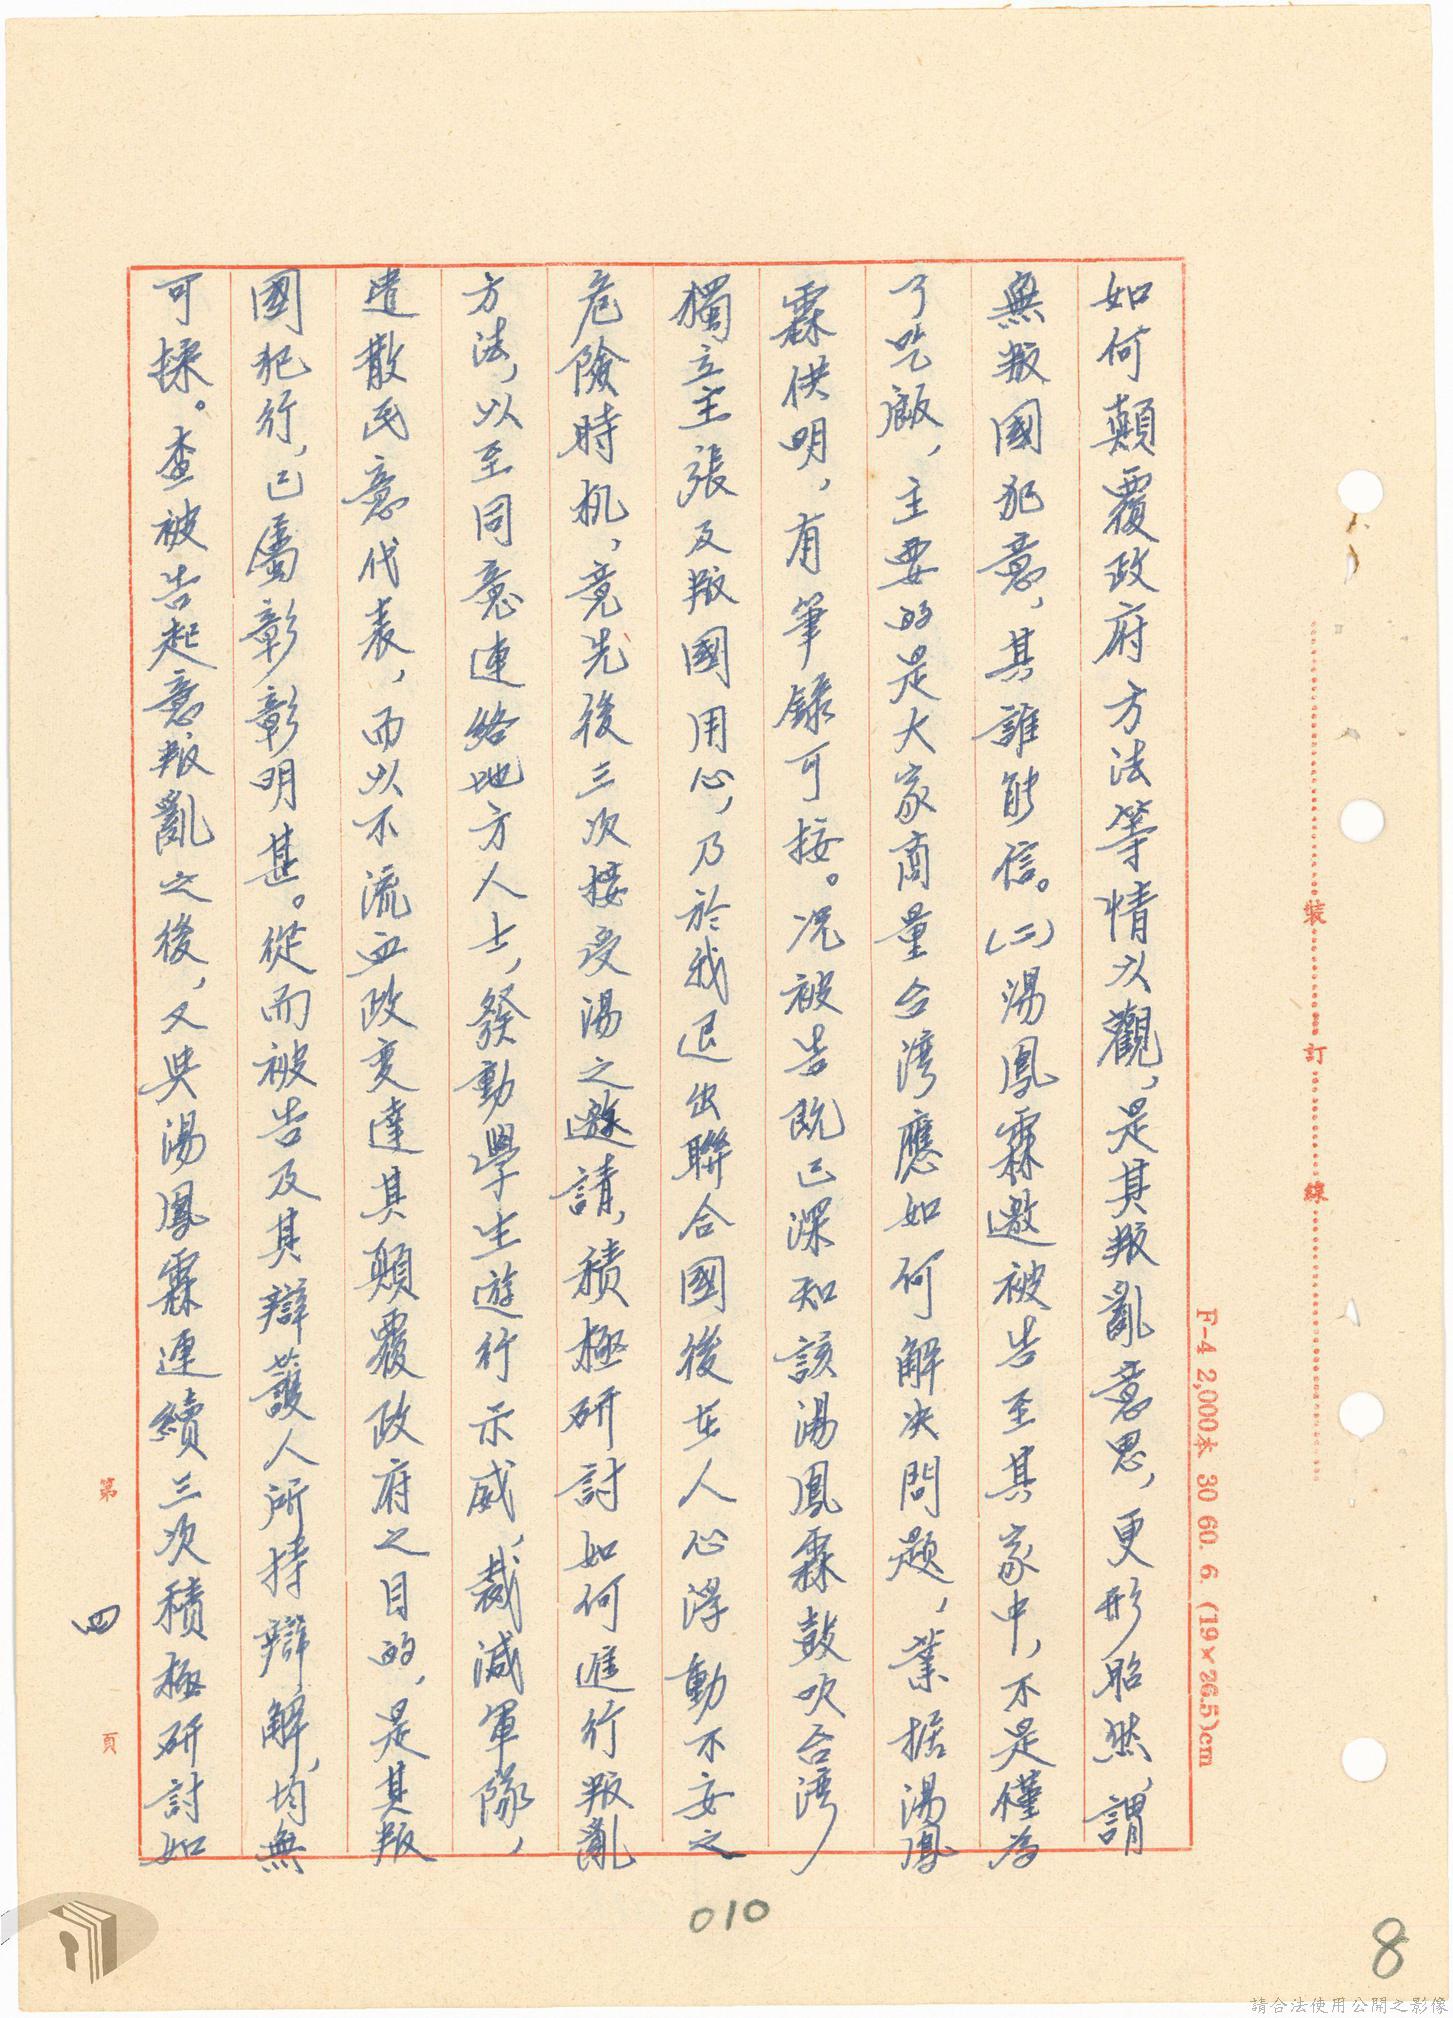 如何顛覆政府方法等情以觀，是其叛亂意思，更形昭然，謂
無叛國犯意，其誰能信。(二)湯鳳霖邀被告至其家中，不是僅為
了吃飯，主要的是大家商量台湾應如何解决問題，業据湯鳳
霖供明，有筆錄可按。况被告既已深知該湯鳳霖鼓吹台湾
獨立主張及叛國用心，乃於我退出聯合國後在人心浮動不安之
危險時机，竟先後三次接受湯之邀請，積極研討如何進行叛亂
方法，以至同意連絡地方人士，發動學生遊行示威，裁減軍隊，
遣散民意代表，而以不流血政变達其顛覆政府之目的，是其叛
國犯行，已屬彰彰明甚。從而被告及其辯護人所持辯解，均無
可採。查被告起意叛亂之後，又与湯鳳霖連續三次積極研討如
第 四 頁
裝 訂 線
F-4 2,000本 30 60. 6. (19×26.5)cm
010
8
請合法使用公開之影像